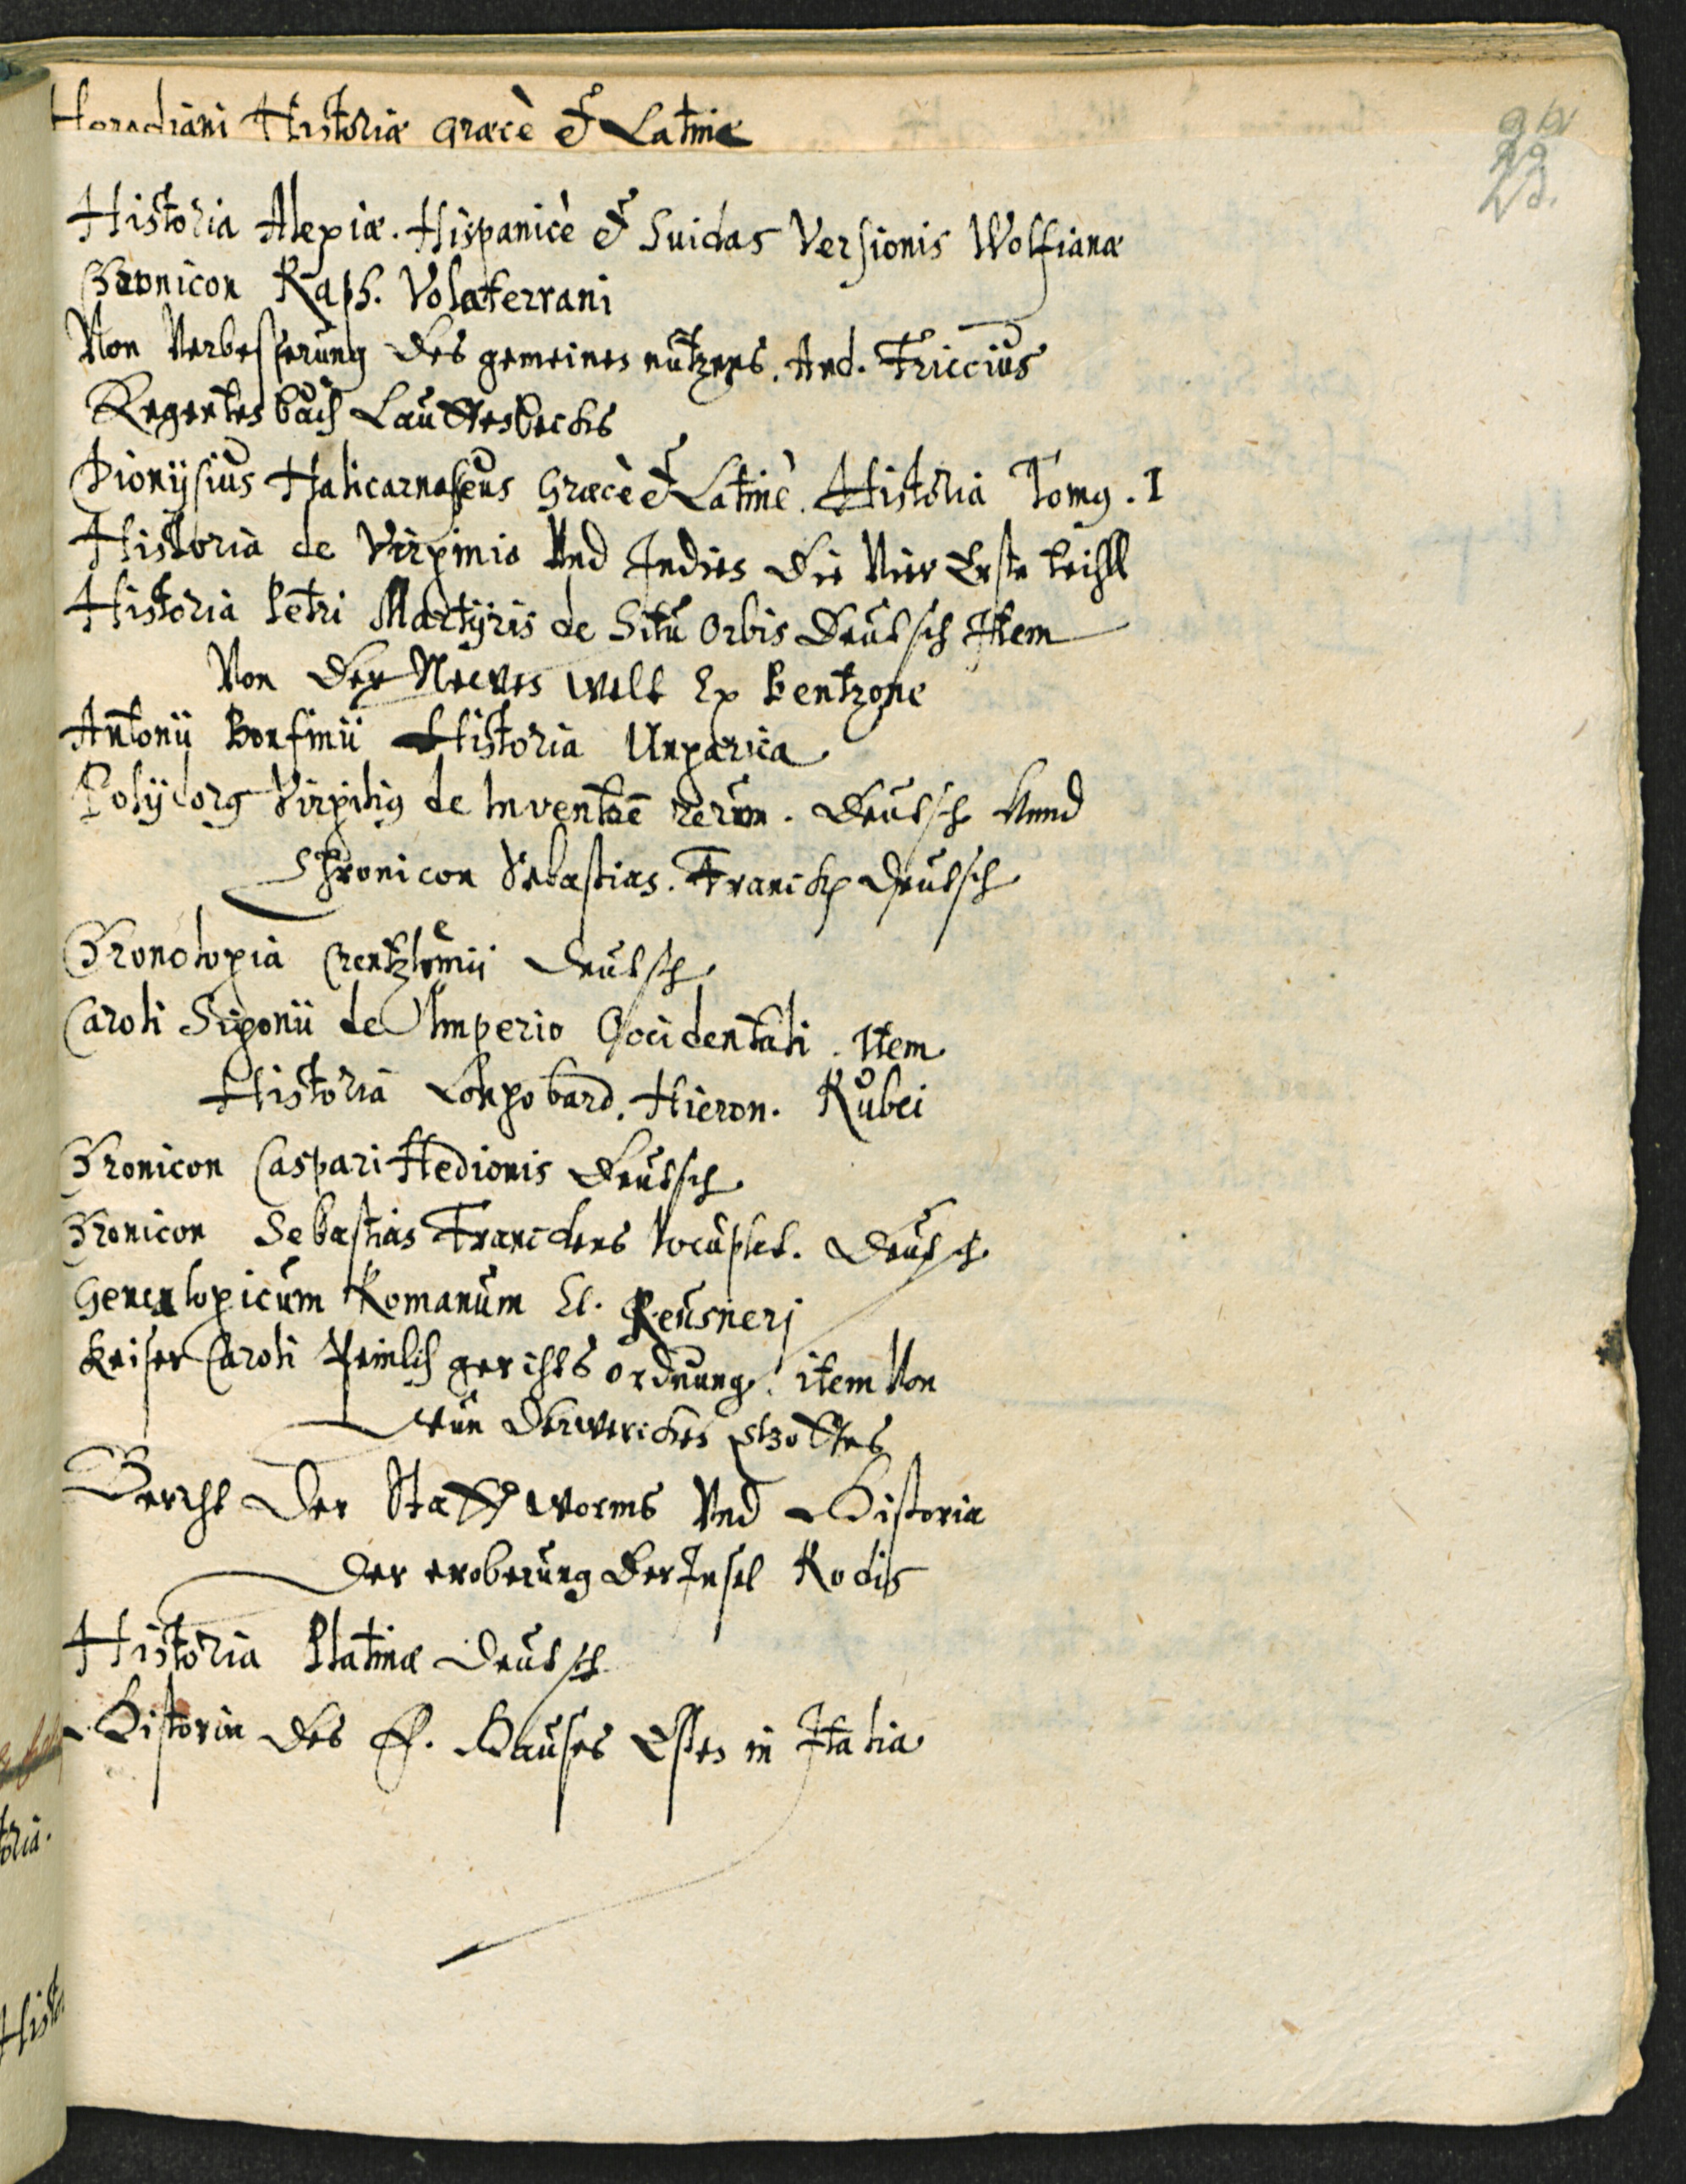 Herodiani Historiæ Græcè & Latinæ
Historia Mexiæ. Hispanicè & Suidas Versionis Wolfianæ
Chronicon Raph. Volaterrani
Von Verbesserung des gemeinen nutzens. And. Friccius
Regentenbuch Lautterbecks
Dionysius Halicarnaseus Græcè & Latinè. Historia Tomus. I
Historia de Virginia Vnd Indien die Vier Erste teihll
Historia Petri Martyris de Situ Orbis Deutsch Item
Von der Neewen welt Ex Bentzone
Antonii Bonfinii Historia Ungarica
Polydorus Virgilius de Inventoribus rerum. Deutsch Vnnd
Chronicon Sebastian. Francken Deutsch
Chronologia Deutsch
Caroli Sigonii de Imperio Occidentali. Item
Historia Longobard. Hieron. Rubei
Chronicon Caspari Hedionis Deutsch
Chronicon Sebastian Franckens locuplet. Deutsch
Genealogicum Romanum El. Reusneri
Keiser Caroli Peinlich gerichts ordnung. item Von
Bericht der Statt Worms Vnd Historia
der eroberung der Insel Rodis
Historia Platinæ Deutsch
Historia des F. Hauses Esten in Italia